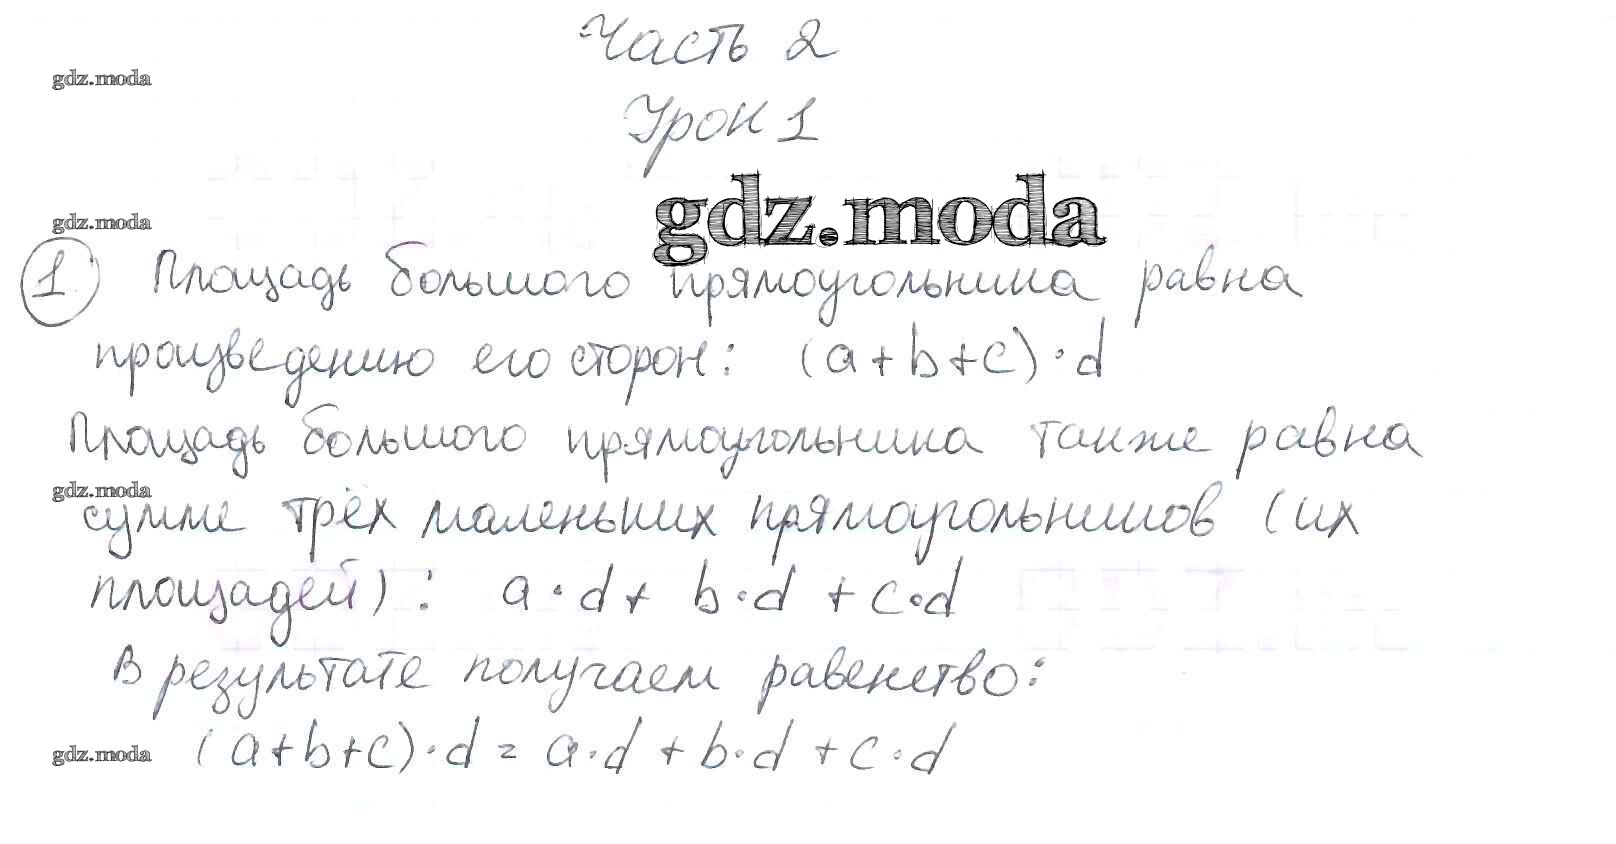 Часть 2
gdz.moda
Урок 1
gdz.moda
gdz.moda
1 Площадь большого прямоугольника равна
произведению его сторон: (a+b+c)·d
Площадь большого прямоугольника также равна
gdz.moda
сумме трёх маленьких прямоугольников (их
площадей): a·d+ b·d + c·d
В результате получаем равенство:
gdz.moda
(a+b+c)·d = a·d + b·d + c·d